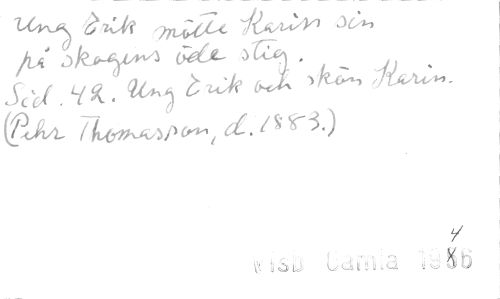 Ung Erik mötte Karin sin
på skogens öde stig.
Sid. 42. Ung Erik och skön Karin.
(Pehr Thomasson, d. 1883.)
4
Visb Gamla 1956